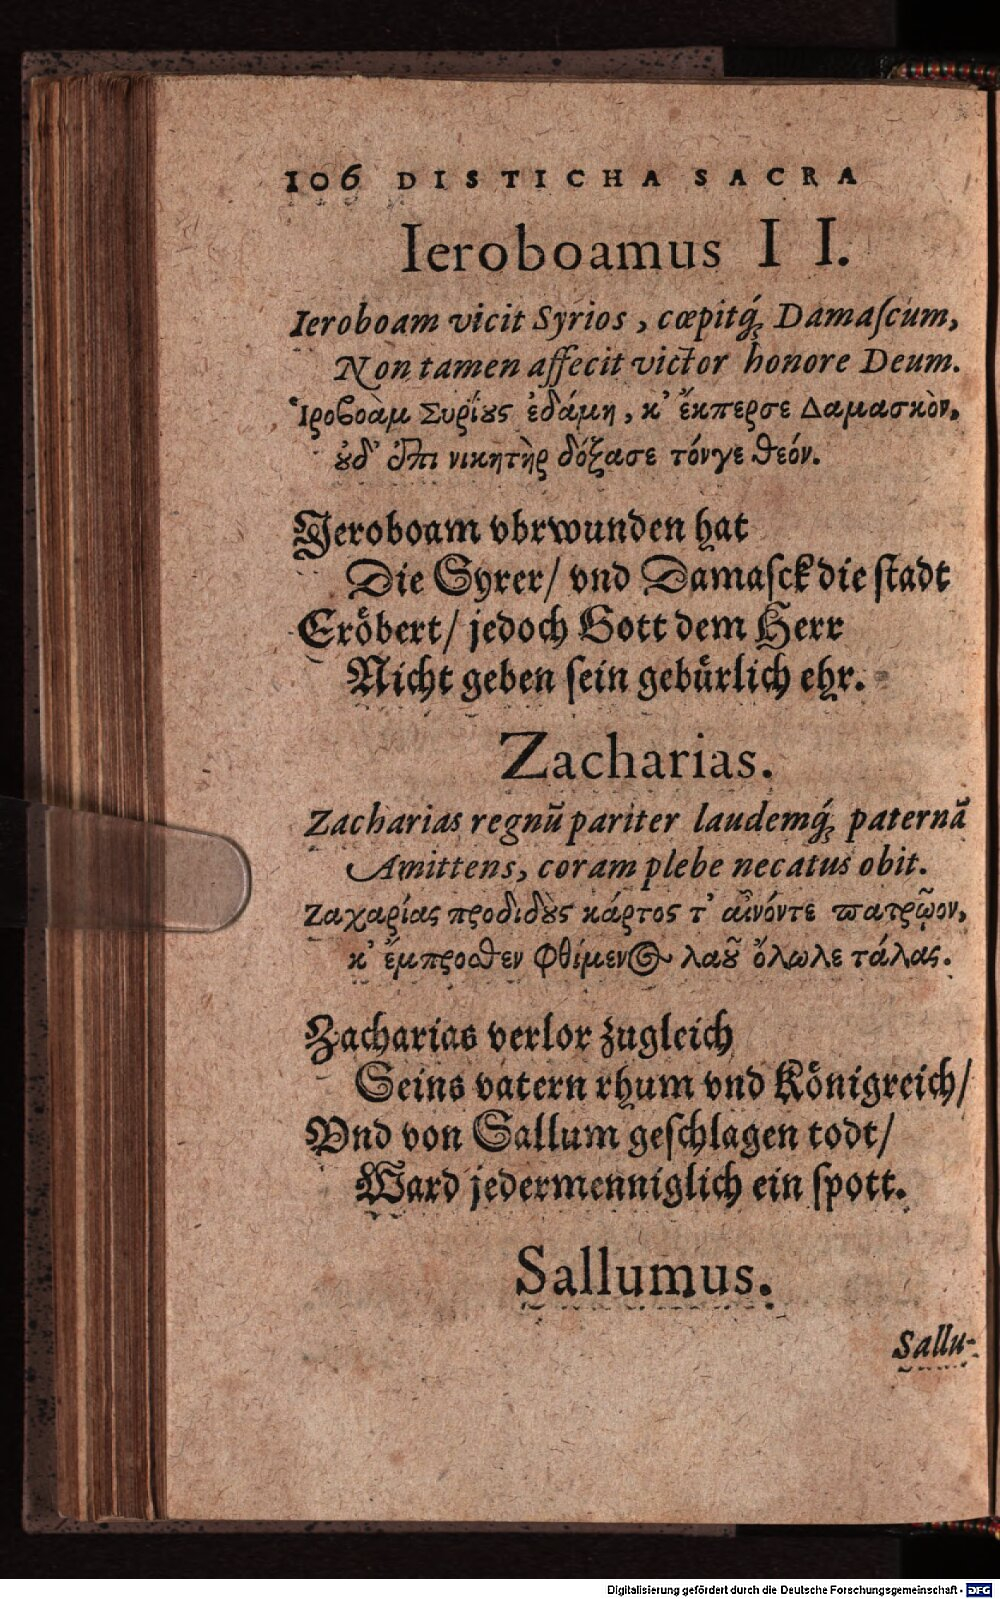 106 DISTICHA SACRA
Ieroboamus II.
Ieroboam vicit Syrios, cœpitq́; Damaſcum,
Non tamen affecit victor honore Deum.
Ἱροβοὰμ Συρίȣς ἐδάμη, κ’ ἔκπερσε Δαμασκὸν,
ȣδ’ ἐπὶ νικητὴρ δόξασε τόνγε θεόν.
Jeroboam vbrwunden hat
Die Syrer/ vnd Damaſck die ſtadt
Erobert/ jedoch Gott dem Herr
Nicht geben ſein gebuͤrlich ehr.
Zacharias.
Zacharias regnũ pariter laudemq́; paternã
Amittens, coram plebe necatus obit.
Ζαχαρίας προδιδȣ̀ς κάρτος τ’ αἰνόντε πατρῷον,
κ’ ἔμπροσθεν φθίμενος λαȣ͂ ὄλωλε τάλας.
Zacharias verlor zugleich
Seins vatern rhum vnd Koͤnigreich/
Vnd von Sallum geſchlagen todt/
Ward jedermenniglich ein ſpott.
Sallumus.
Sallu-
Digitalisierung gefördert durch die Deutsche Forschungsgemeinschaft - DFG